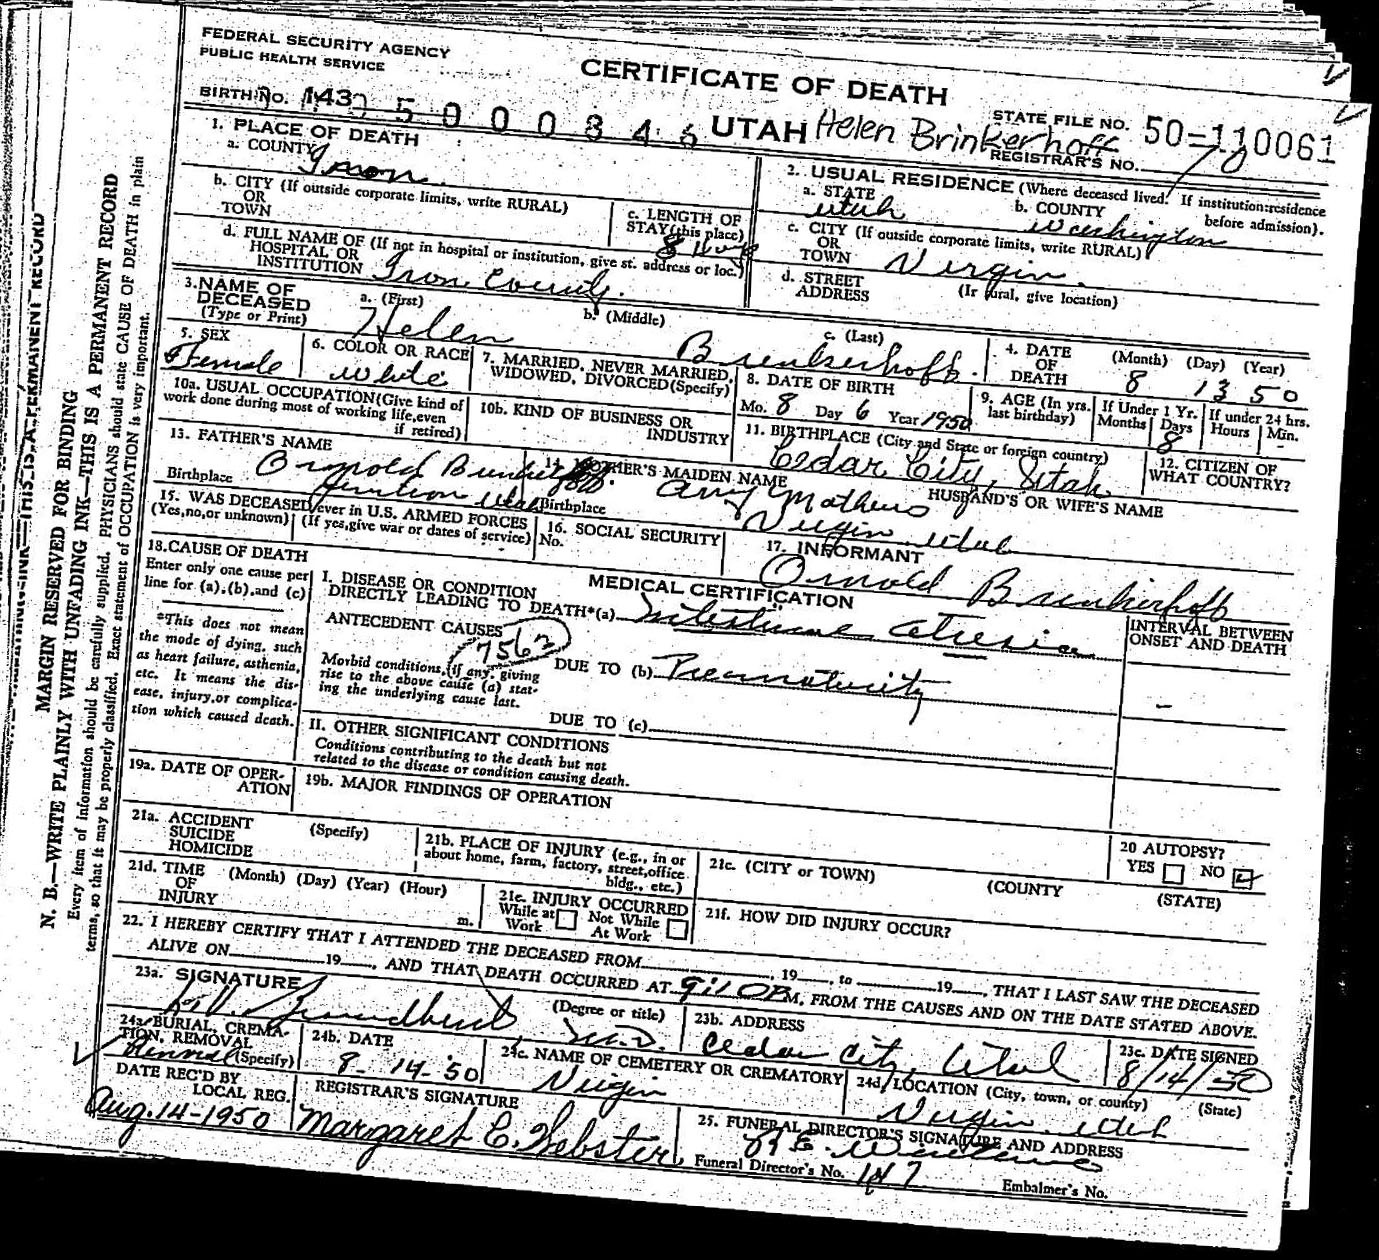 FEDERAL SECURITY AGENCY
PUBLIC HEALTH SERVICE
CERTIFICATE OF DEATH
BIRTH NO. 143 5 0 0 0 3 4 6 UTAH Helen Brinkerhoff
STATE FILE NO. 50-110061
REGISTRAR'S NO. 70
1. PLACE OF DEATH
a. COUNTY Iron
b. CITY (If outside corporate limits, write RURAL)
OR
TOWN
c. LENGTH OF
STAY (this place)
8 days
d. FULL NAME OF (If not in hospital or institution, give st. address or loc.)
HOSPITAL OR
INSTITUTION Iron County.
2. USUAL RESIDENCE (Where deceased lived. If institution:residence
before admission).
a. STATE
Utah
b. COUNTY
Washington
c. CITY (If outside corporate limits, write RURAL)
OR
TOWN Virgin.
d. STREET
ADDRESS
(If rural, give location)
3. NAME OF
DECEASED
(Type or Print)
a. (First)
Helen
b. (Middle)
c. (Last)
Brinkerhoff.
4. DATE
OF
DEATH
(Month) (Day) (Year)
8 13 50
5. SEX
Female
6. COLOR OR RACE
White
7. MARRIED, NEVER MARRIED,
WIDOWED, DIVORCED (Specify)
8. DATE OF BIRTH
Mo. 8 Day 6 Year 1950
9. AGE (In yrs.
last birthday)
If Under 1 Yr.
Months Days
8
If under 24 hrs.
Hours Min.
10a. USUAL OCCUPATION (Give kind of
work done during most of working life, even
if retired)
10b. KIND OF BUSINESS OR
INDUSTRY
11. BIRTHPLACE (City and State or foreign country)
Cedar City, Utah
12. CITIZEN OF
WHAT COUNTRY?
13. FATHER'S NAME
Ornold Brinkerhoff.
Birthplace
Utah
14. MOTHER'S MAIDEN NAME
Amy Mathews
Birthplace
Virgin Utah
HUSBAND'S OR WIFE'S NAME
15. WAS DECEASED ever in U.S. ARMED FORCES
(Yes, no, or unknown) (If yes, give war or dates of service)
16. SOCIAL SECURITY
No.
17. INFORMANT
Ornold Brinkerhoff
18. CAUSE OF DEATH
Enter only one cause per
line for (a), (b), and (c)
*This does not mean
the mode of dying, such
as heart failure, asthenia,
etc. It means the dis-
ease, injury, or complica-
tion which caused death.
MEDICAL CERTIFICATION
I. DISEASE OR CONDITION
DIRECTLY LEADING TO DEATH*(a) Intestinal atresia
INTERVAL BETWEEN
ONSET AND DEATH
ANTECEDENT CAUSES
7562
Morbid conditions, if any, giving
rise to the above cause (a) stat-
ing the underlying cause last.
DUE TO (b) Prematurity
DUE TO (c)
II. OTHER SIGNIFICANT CONDITIONS
Conditions contributing to the death but not
related to the disease or condition causing death.
19a. DATE OF OPER-
ATION
19b. MAJOR FINDINGS OF OPERATION
20 AUTOPSY?
YES NO
21a. ACCIDENT
SUICIDE
HOMICIDE
(Specify)
21b. PLACE OF INJURY (e.g., in or
about home, farm, factory, street, office
bldg., etc.)
21c. (CITY or TOWN) (COUNTY (STATE)
21d. TIME
OF
INJURY
(Month) (Day) (Year) (Hour)
m.
21e. INJURY OCCURRED
While at Work
Not While At Work
21f. HOW DID INJURY OCCUR?
22. I HEREBY CERTIFY THAT I ATTENDED THE DECEASED FROM , 19 , to 19 , THAT I LAST SAW THE DECEASED
ALIVE ON 19 , AND THAT DEATH OCCURRED AT 9:10 PM, FROM THE CAUSES AND ON THE DATE STATED ABOVE.
23a. SIGNATURE
(Degree or title)
M.D.
23b. ADDRESS
Cedar City, Utah
23c. DATE SIGNED
8/14/50
24a. BURIAL, CREMA-
TION, REMOVAL
(Specify)
Removal
24b. DATE
8-14-'50
24c. NAME OF CEMETERY OR CREMATORY
Virgin
24d. LOCATION (City, town, or county) (State)
Virgin Utah
DATE REC'D BY
LOCAL REG.
Aug. 14-1950
REGISTRAR'S SIGNATURE
Margaret E. Webster
25. FUNERAL DIRECTOR'S SIGNATURE AND ADDRESS
Funeral Director's No. 147
Embalmer's No.
N. B.—WRITE PLAINLY WITH UNFADING INK—THIS IS A PERMANENT RECORD
MARGIN RESERVED FOR BINDING
Every item of information should be carefully supplied. PHYSICIANS should state CAUSE OF DEATH in plain
terms, so that it may be properly classified. Exact statement of OCCUPATION is very important.
THIS IS A PERMANENT RECORD